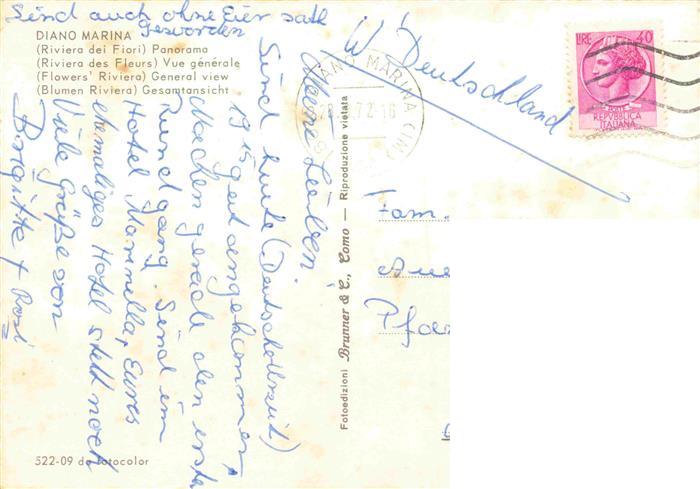 Sind auch ohne Eier satt
geworden
DIANO MARINA
(Riviera dei Fiori) Panorama
(Riviera des Fleurs) Vue générale
(Flowers' Riviera) General view
(Blumen Riviera) Gesamtansicht
Meine Lieben.
Sind heute (Deutschlzeit)
19 15 gut angekommen,
Machen gerade den erste
Rundgang. Sind im
Hotel Marinella, Eures
ehemaliges Hotel steht noch
Viele Grüße von
Brigitte + Rosi
522-09 da fotocolor
Fotoedizioni Brunner & C., Como — Riproduzione vietata
DIANO MARINA (IM)
72-16
W Deutschland
LIRE 40
REPVBBLICA
ITALIANA
Fam.